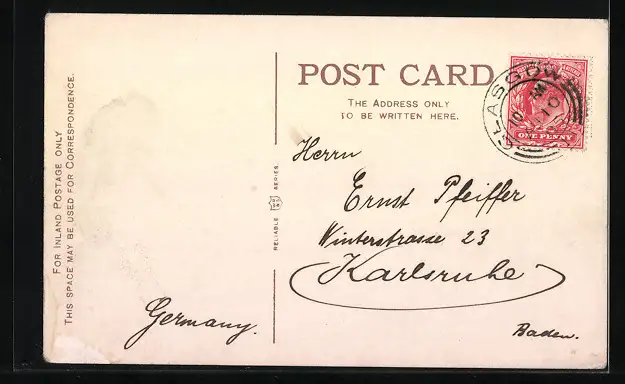 FOR INLAND POSTAGE ONLY
THIS SPACE MAY BE USED FOR CORRESPONDENCE.
RELIABLE SERIES.
POST CARD
THE ADDRESS ONLY
TO BE WRITTEN HERE.
GLASGOW
10 AM
ONE PENNY
Herrn
Ernst Pfeiffer
Winterstrasse 23
Karlsruhe
Baden.
Germany.